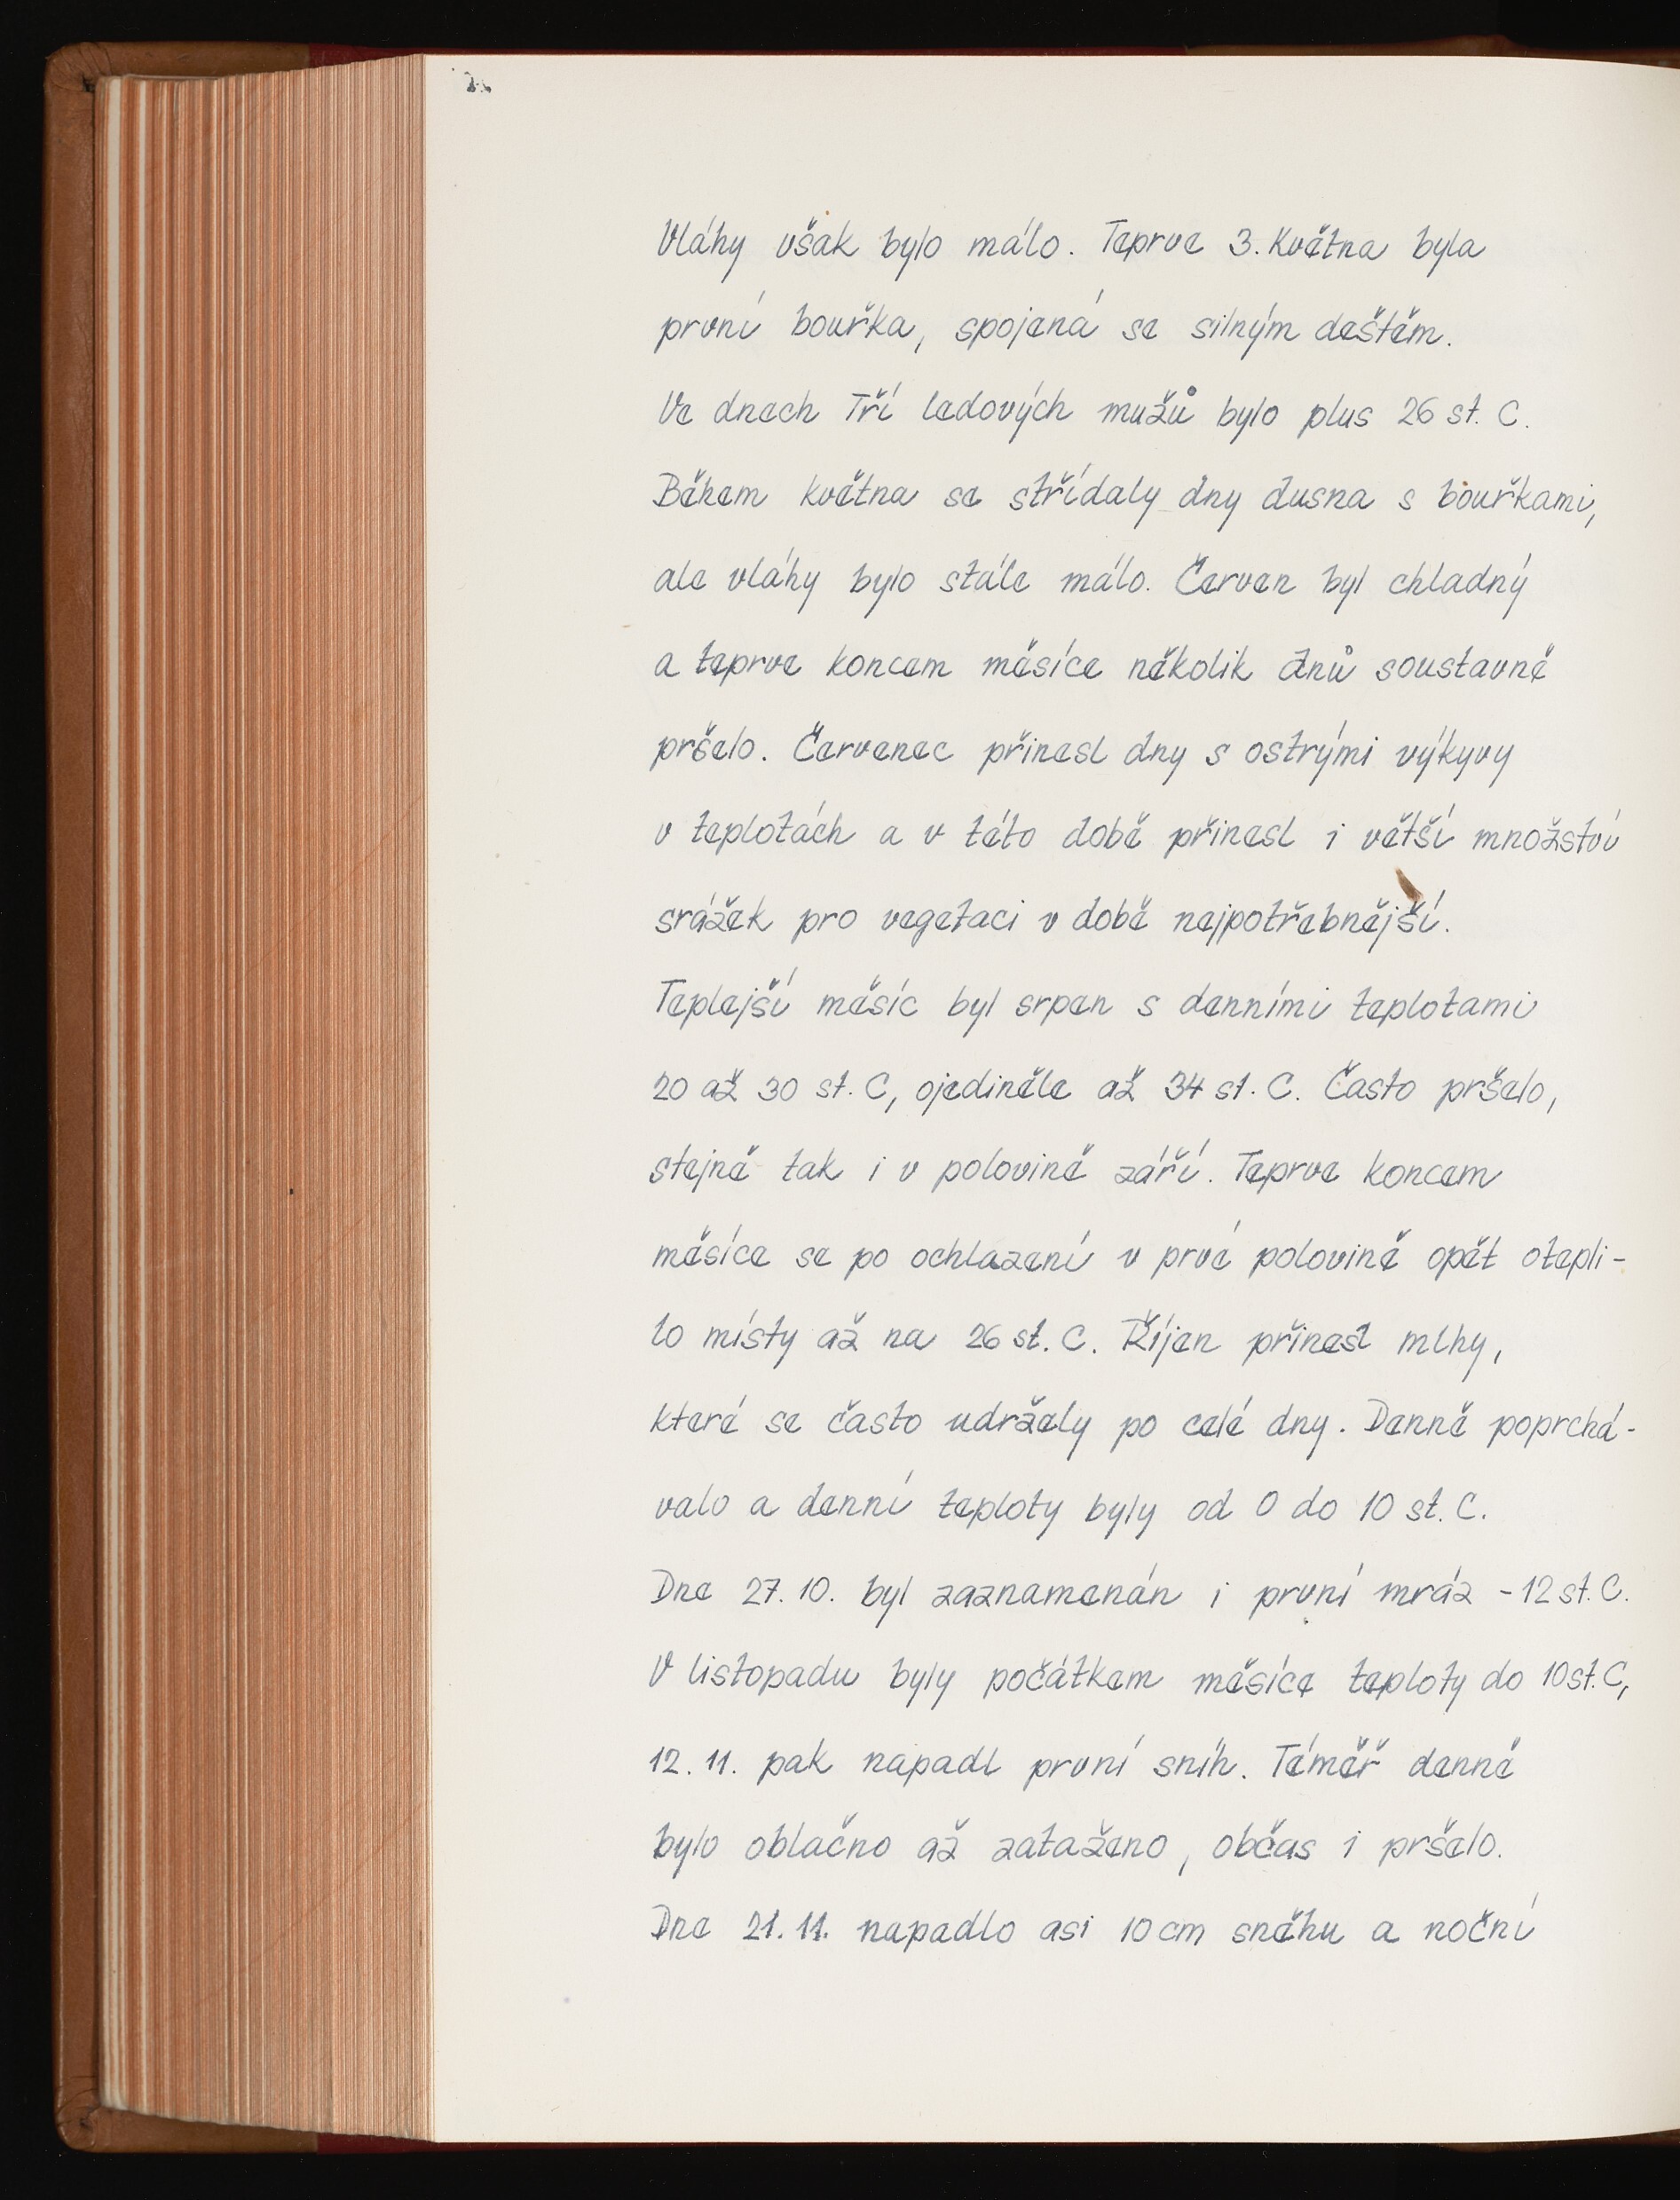 Vláhy však bylo málo. Teprve 3. Května byla
první bouřka, spojená se silným deštěm.
Ve dnech Tří ledových mužů bylo plus 26 st. C.
Během května se střídaly dny dusna s bouřkami,
ale vláhy bylo stále málo. Červen byl chladný
a teprve koncem měsíce několik dnů soustavně
pršelo. Červenec přinesl dny s ostrými výkyvy
v teplotách a v této době přinesl i větší množství
srážek pro vegetaci v době nejpotřebnější.
Teplejší měsíc byl srpen s denními teplotami
20 až 30 st. C, ojediněle až 34 st. C. Často pršelo,
stejně tak i v polovině září. Teprve koncem
měsíce se po ochlazení v prvé polovině opět otepli-
lo místy až na 26 st. C. Říjen přinesl mlhy,
které se často udržely po celé dny. Denně poprchá-
valo a denní teploty byly od 0 do 10 st. C.
Dne 27. 10. byl zaznamenán i první mráz -12 st. C.
V listopadu byly počátkem měsíce teploty do 10 st. C,
12. 11. pak napadl první sníh. Téměř denně
bylo oblačno až zataženo, občas i pršelo.
Dne 21. 11. napadlo asi 10 cm sněhu a noční